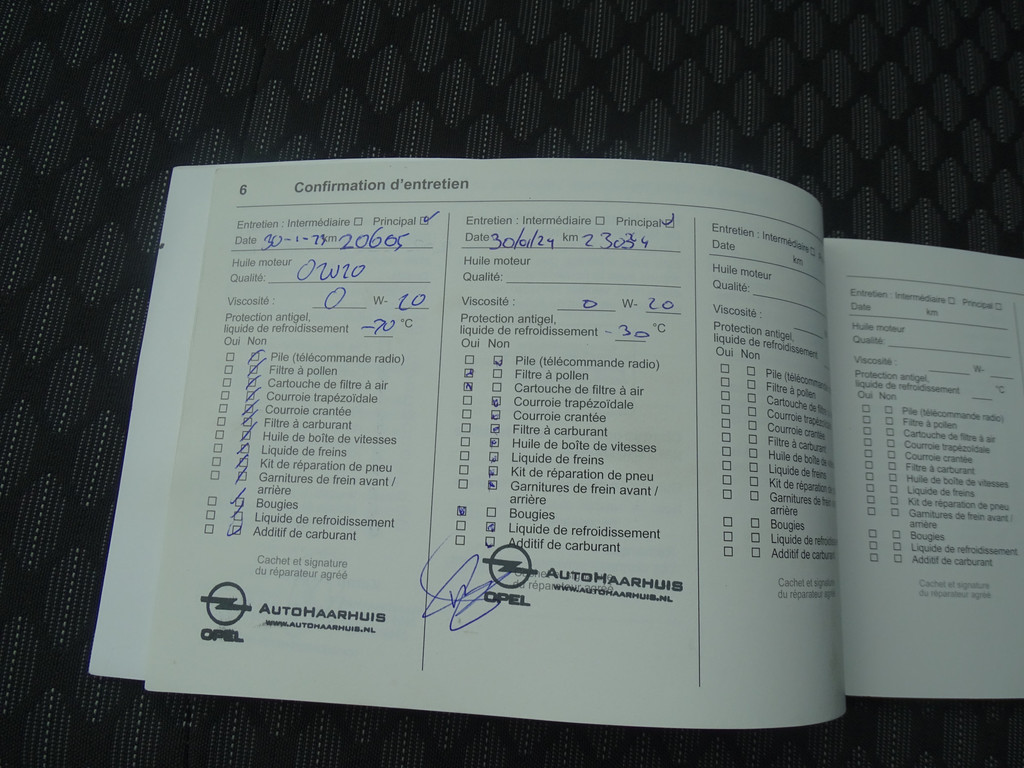 6 Confirmation d'entretien
Entretien : Intermédiaire ☐ Principal ☑
Date 30-1-23 km 20605
Huile moteur
Qualité: 0W20
Viscosité : 0 W- 20
Protection antigel,
liquide de refroidissement -70 °C
Oui Non
Pile (télécommande radio)
Filtre à pollen
Cartouche de filtre à air
Courroie trapézoïdale
Courroie crantée
Filtre à carburant
Huile de boîte de vitesses
Liquide de freins
Kit de réparation de pneu
Garnitures de frein avant /
arrière
Bougies
Liquide de refroidissement
Additif de carburant
Cachet et signature
du réparateur agréé
OPEL AUTOHAARHUIS
WWW.AUTOHAARHUIS.NL
Entretien : Intermédiaire ☐ Principal ☑
Date 30/01/24 km 23034
Huile moteur
Qualité:
Viscosité : 0 W- 20
Protection antigel,
liquide de refroidissement -30 °C
Oui Non
Pile (télécommande radio)
Filtre à pollen
Cartouche de filtre à air
Courroie trapézoïdale
Courroie crantée
Filtre à carburant
Huile de boîte de vitesses
Liquide de freins
Kit de réparation de pneu
Garnitures de frein avant /
arrière
Bougies
Liquide de refroidissement
Additif de carburant
du réparateur agréé
OPEL AUTOHAARHUIS
WWW.AUTOHAARHUIS.NL
Entretien : Intermédiaire ☐
Date km
Huile moteur
Qualité:
Viscosité :
Protection antigel,
liquide de refroidissement
Oui Non
Pile (télécommande
Filtre à pollen
Cartouche de filtre
Courroie trapézoïdale
Courroie crantée
Filtre à carburant
Huile de boîte de
Liquide de freins
Kit de réparation de
Garnitures de frein
arrière
Bougies
Liquide de
Additif de carburant
Cachet et signature
du réparateur agréé
Entretien : Intermédiaire ☐ Principal ☐
Date km
Huile moteur
Qualité:
Viscosité : W-
Protection antigel,
liquide de refroidissement °C
Oui Non
Pile (télécommande radio)
Filtre à pollen
Cartouche de filtre à air
Courroie trapézoïdale
Courroie crantée
Filtre à carburant
Huile de boîte de vitesses
Liquide de freins
Kit de réparation de pneu
Garnitures de frein avant /
arrière
Bougies
Liquide de refroidissement
Additif de carburant
Cachet et signature
du réparateur agréé